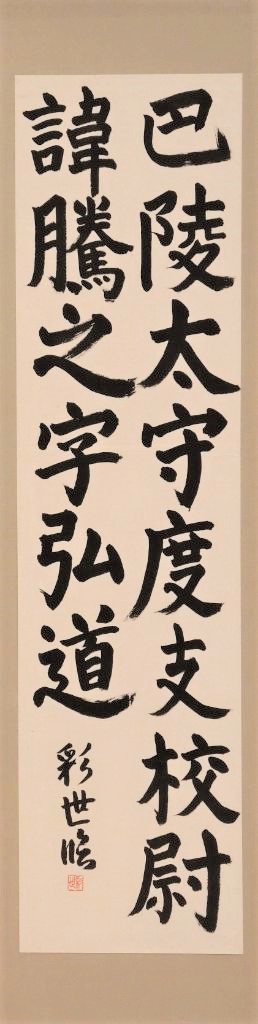 巴陵太守度支校尉
諱騰之字弘道
彩世臨